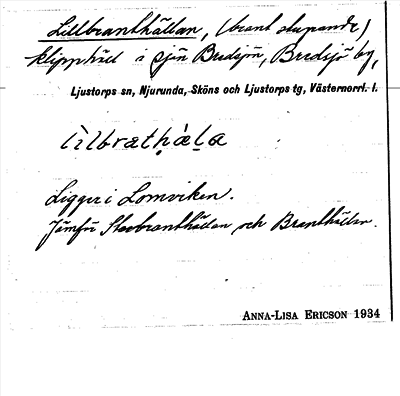 Lillbranthällan, (brant stupande)
klipphäll i sjön Bredsjön, Bredsjö by,
Ljustorps sn, Njurunda, Sköns och Ljustorps tg, Västernorrl. l.
lìlbrat̩hàl̩a
Ligger i Lomviken.
Jämför Storbranthällan och Branthällan.
ANNA-LISA ERICSON 1934